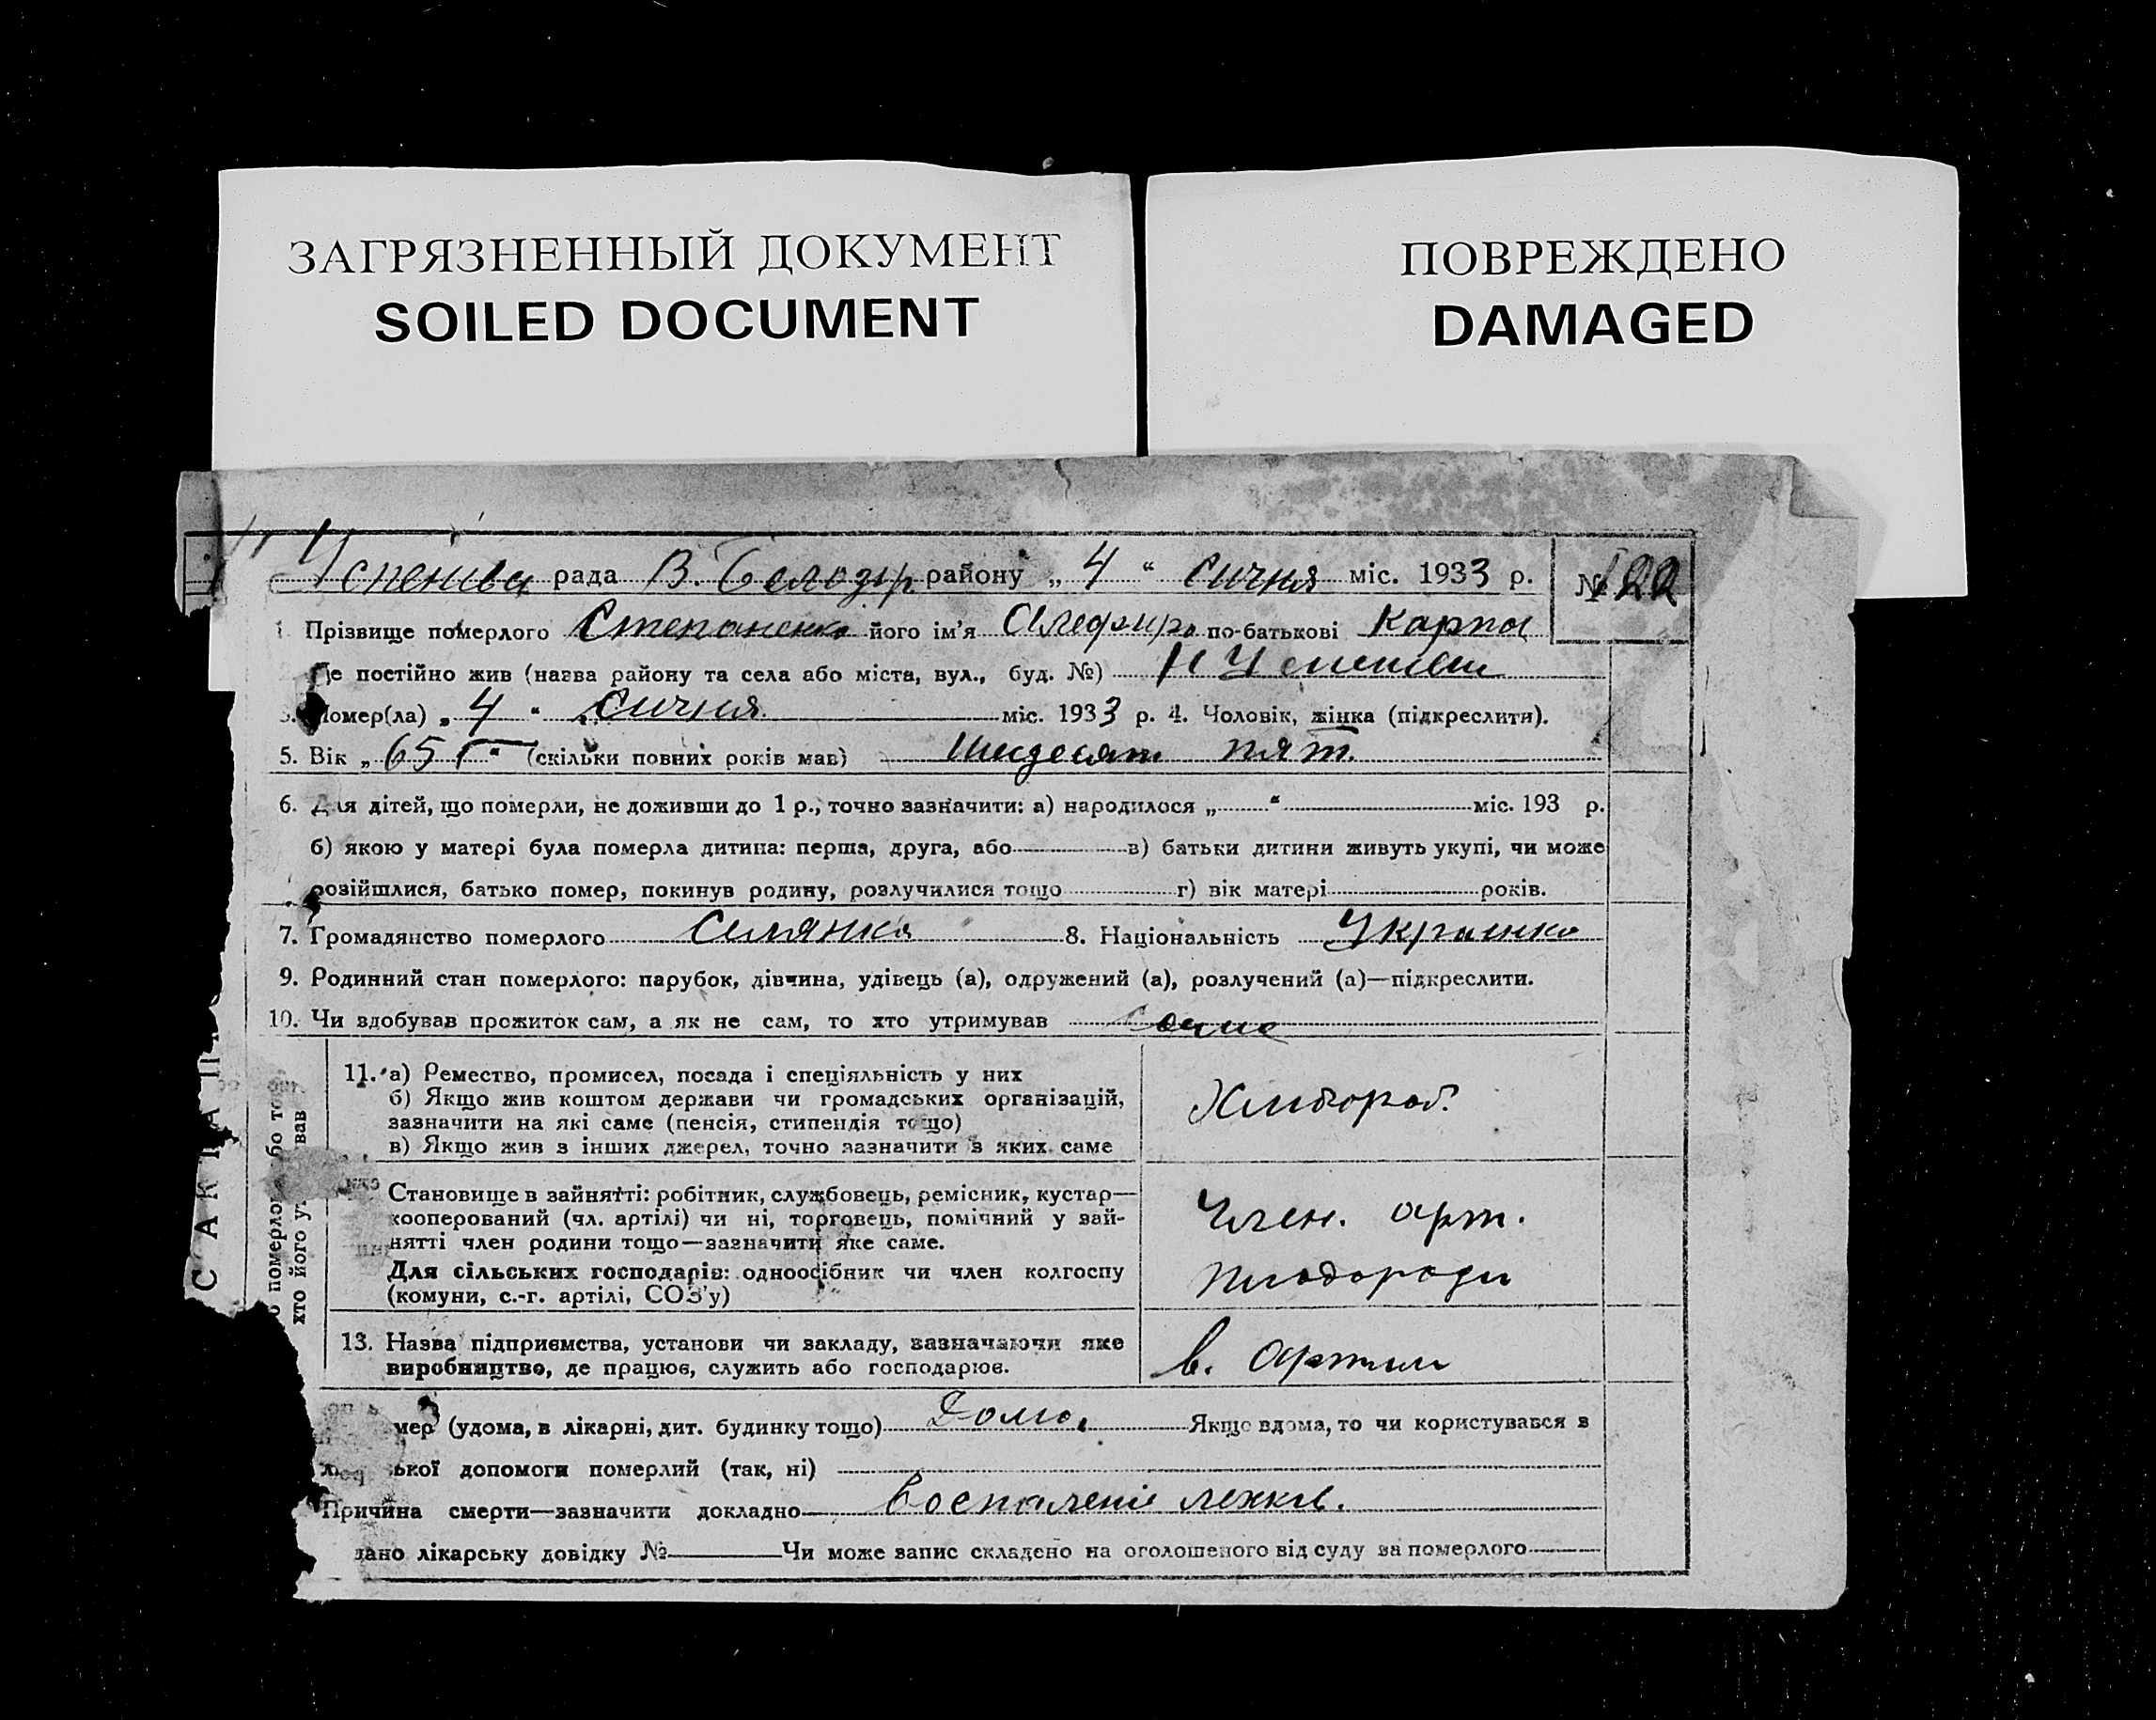 ЗАГРЯЗНЕННЫЙ ДОКУМЕНТ
SOILED DOCUMENT
ПОВРЕЖДЕНО
DAMAGED
Успенівка рада В. Белозір району „ 4 “ Січня міс. 1933 р. № 122
1. Прізвище померлого Степаненко його ім'я по-батькові Карпа
Де постійно жив (назва району та села або міста, вул., буд. №)
3. Помер(ла) „ 4 “ Січня міс. 1933 р. 4. Чоловік, жінка (підкреслити).
5. Вік „ 65 “ (скільки повних років мав) шисдесят пят.
6. Для дітей, що померли, не доживши до 1 р., точно зазначити: а) народилося „ “ міс. 193 р.
б) якою у матері була померла дитина: перша, друга, або в) батьки дитини живуть укупі, чи може
розійшлися, батько помер, покинув родину, розлучилися тощо г) вік матері років.
7. Громадянство померлого Селянка 8. Національність Украінка
9. Родинний стан померлого: парубок, дівчина, удівець (а), одружений (а), розлучений (а)—підкреслити.
10. Чи здобував прожиток сам, а як не сам, то хто утримував
11. а) Ремество, промисел, посада і спеціяльність у них
б) Якщо жив коштом держави чи громадських організацій,
зазначити на які саме (пенсія, стипендія тощо)
в) Якщо жив з інших джерел, точно зазначити з яких саме
Хлибороб.
Становище в зайнятті: робітник, службовець, ремісник, кустар—
кооперований (чл. артілі) чи ні, торговець, помічний у зай-
нятті член родини тощо—зазначити яке саме.
Для сільських господарів: одноосібник чи член колгоспу
(комуни, с.-г. артілі, СОЗ'у)
Член. арт.
13. Назва підприємства, установи чи закладу, зазначаючи яке
виробництво, де працює, служить або господарює.
в. артили
мер (удома, в лікарні, дит. будинку тощо) Дома, Якщо вдома, то чи користувався з
ької допомоги померлий (так, ні)
Причина смерти—зазначити докладно Воспаленіе легких.
дано лікарську довідку № Чи може запис складено на оголошеного від суду за померлого
хто його